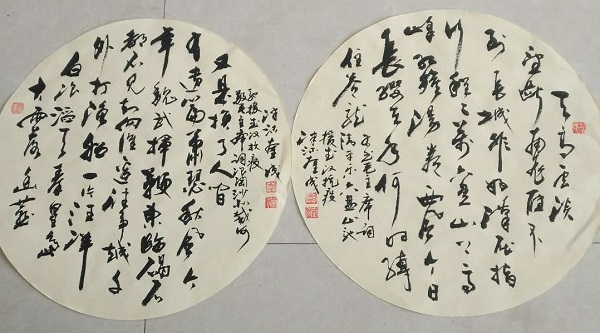 天高云淡
望断南飞雁不
到长城非好汉屈指
行程二万六盘山上高
峰红旗漫卷西风今日
长缨在手何时缚
住苍龙
毛主席词
清平乐六盘山
援武汉抗疫
大雨落幽燕
白浪滔天秦皇岛
外打渔船一片汪洋
都不见知向谁边往事越千
年魏武挥鞭东临碣石
有遗篇萧瑟秋风今
又是换了人间
毛主席词浪淘沙北戴河
援武汉抗疫